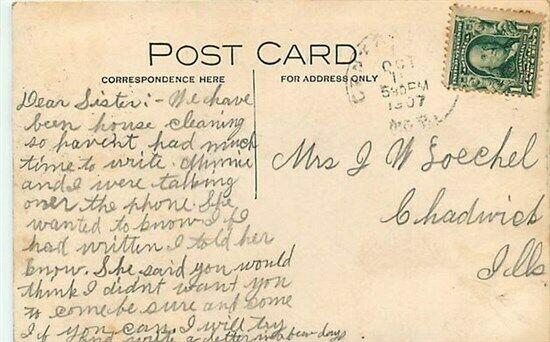 POST CARD
CORRESPONDENCE HERE
FOR ADDRESS ONLY
OCT
11
530PM
1907
Dear Sister:- We have
been house cleaning
so havent had much
time to write. Minnie
and I were talking
over the phone. She
wanted to know if I
had written I told her
know. She said you would
think I didnt want you
to come be sure and come
if you can. I will try
and write a letter in a few days
Mrs J W Loechel
Chadwick
Ills